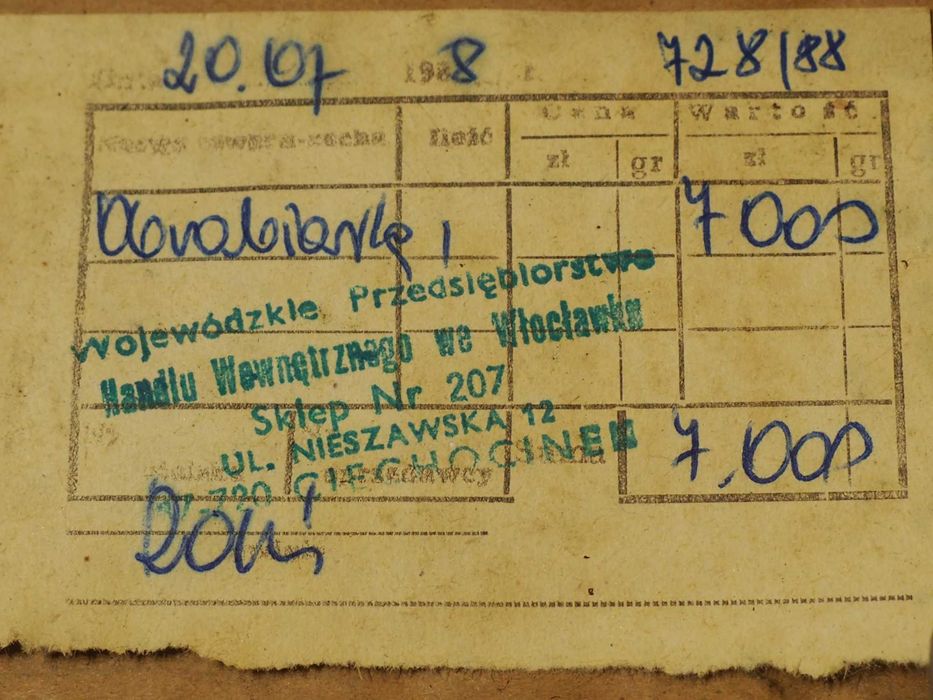 20.07 1988 r. 728/88
Nazwa towaru-cecha Ilość Cena Wartość
zł gr zł gr
1 7000
Wojewódzkie Przedsiębiorstwo
Handlu Wewnętrznego we Włocławku
Sklep Nr 207
UL. NIESZAWSKA 12
87-720 CIECHOCINEK
7.000